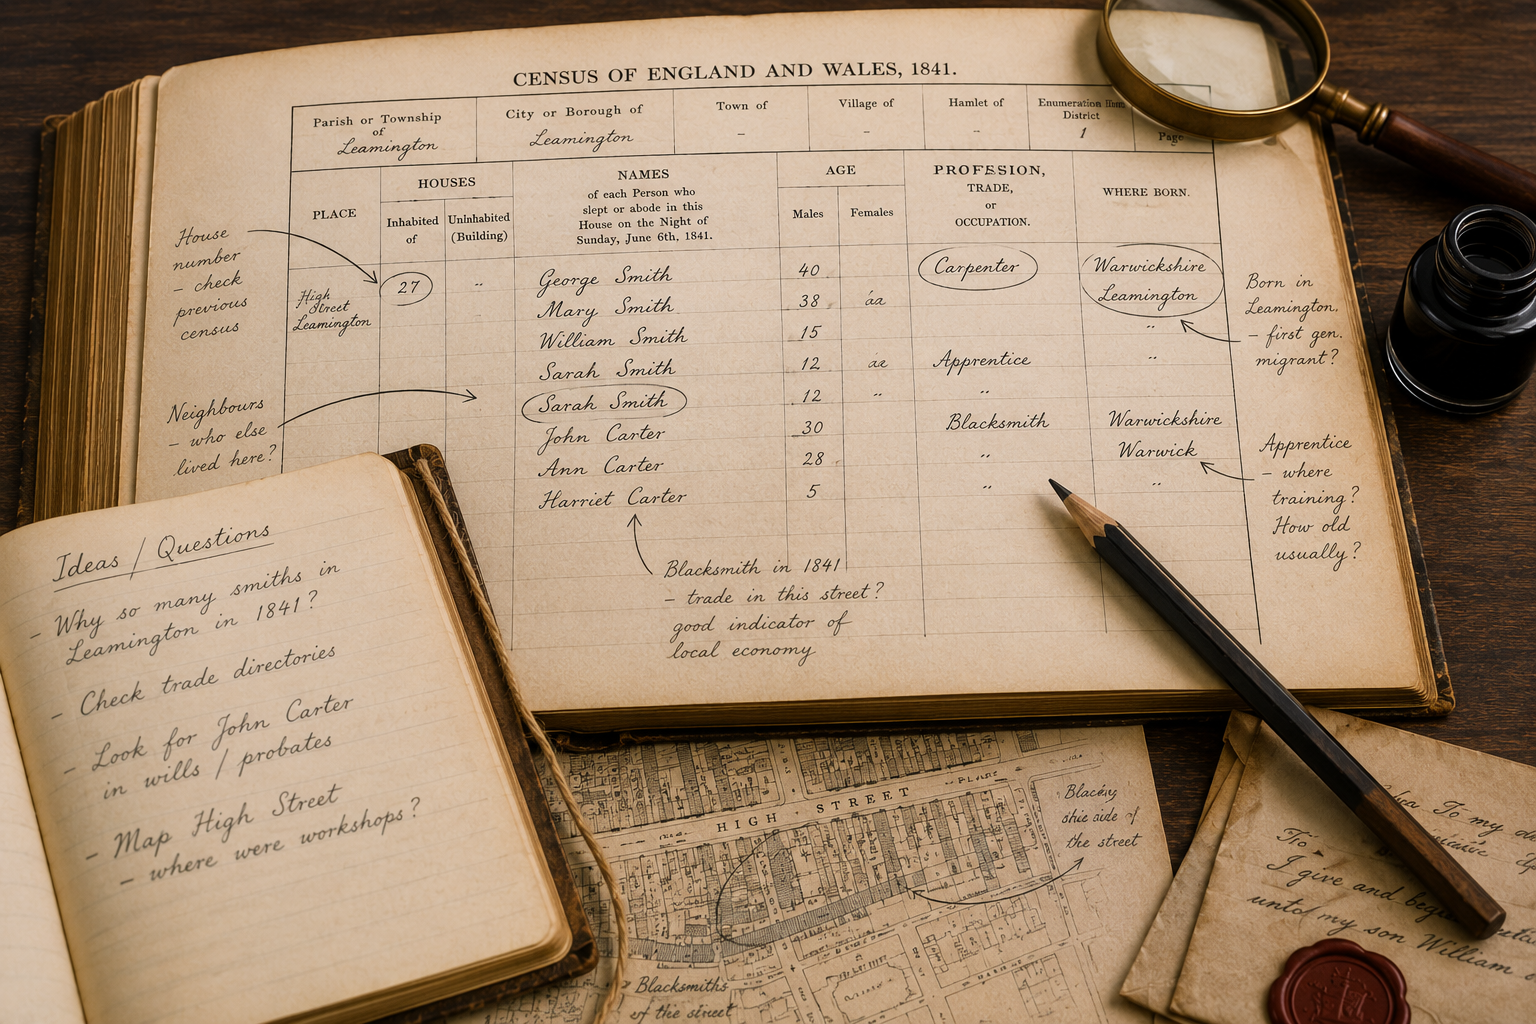 CENSUS OF ENGLAND AND WALES, 1841.
Parish or Township
of
Leamington
City or Borough of
Leamington
Town of
–
Village of
–
Hamlet of
–
Enumeration
District
1
Page
PLACE
HOUSES
Inhabited
of
Uninhabited
(Building)
NAMES
of each Person who
slept or abode in this
House on the Night of
Sunday, June 6th, 1841.
AGE
Males
Females
PROFESSION,
TRADE,
or
OCCUPATION.
WHERE BORN.
High
Street
Leamington
27
"
George Smith
40
Carpenter
Warwickshire
Mary Smith
38
Leamington
William Smith
15
"
Sarah Smith
12
Apprentice
"
Sarah Smith
12
"
"
John Carter
30
Blacksmith
Warwickshire
Ann Carter
28
"
Warwick
Harriet Carter
5
"
"
House
number
– check
previous
census
Neighbours
– who else
lived here?
Born in
Leamington.
– first gen.
migrant?
Apprentice
– where
training?
How old
usually?
Blacksmith in 1841
– trade in this street?
good indicator of
local economy
Ideas / Questions
– Why so many smiths in
Leamington in 1841?
– Check trade directories
– Look for John Carter
in wills / probates
– Map High Street
– where were workshops?
HIGH STREET
the street
Blacksmiths
of the street
To my
I give and
unto my son William